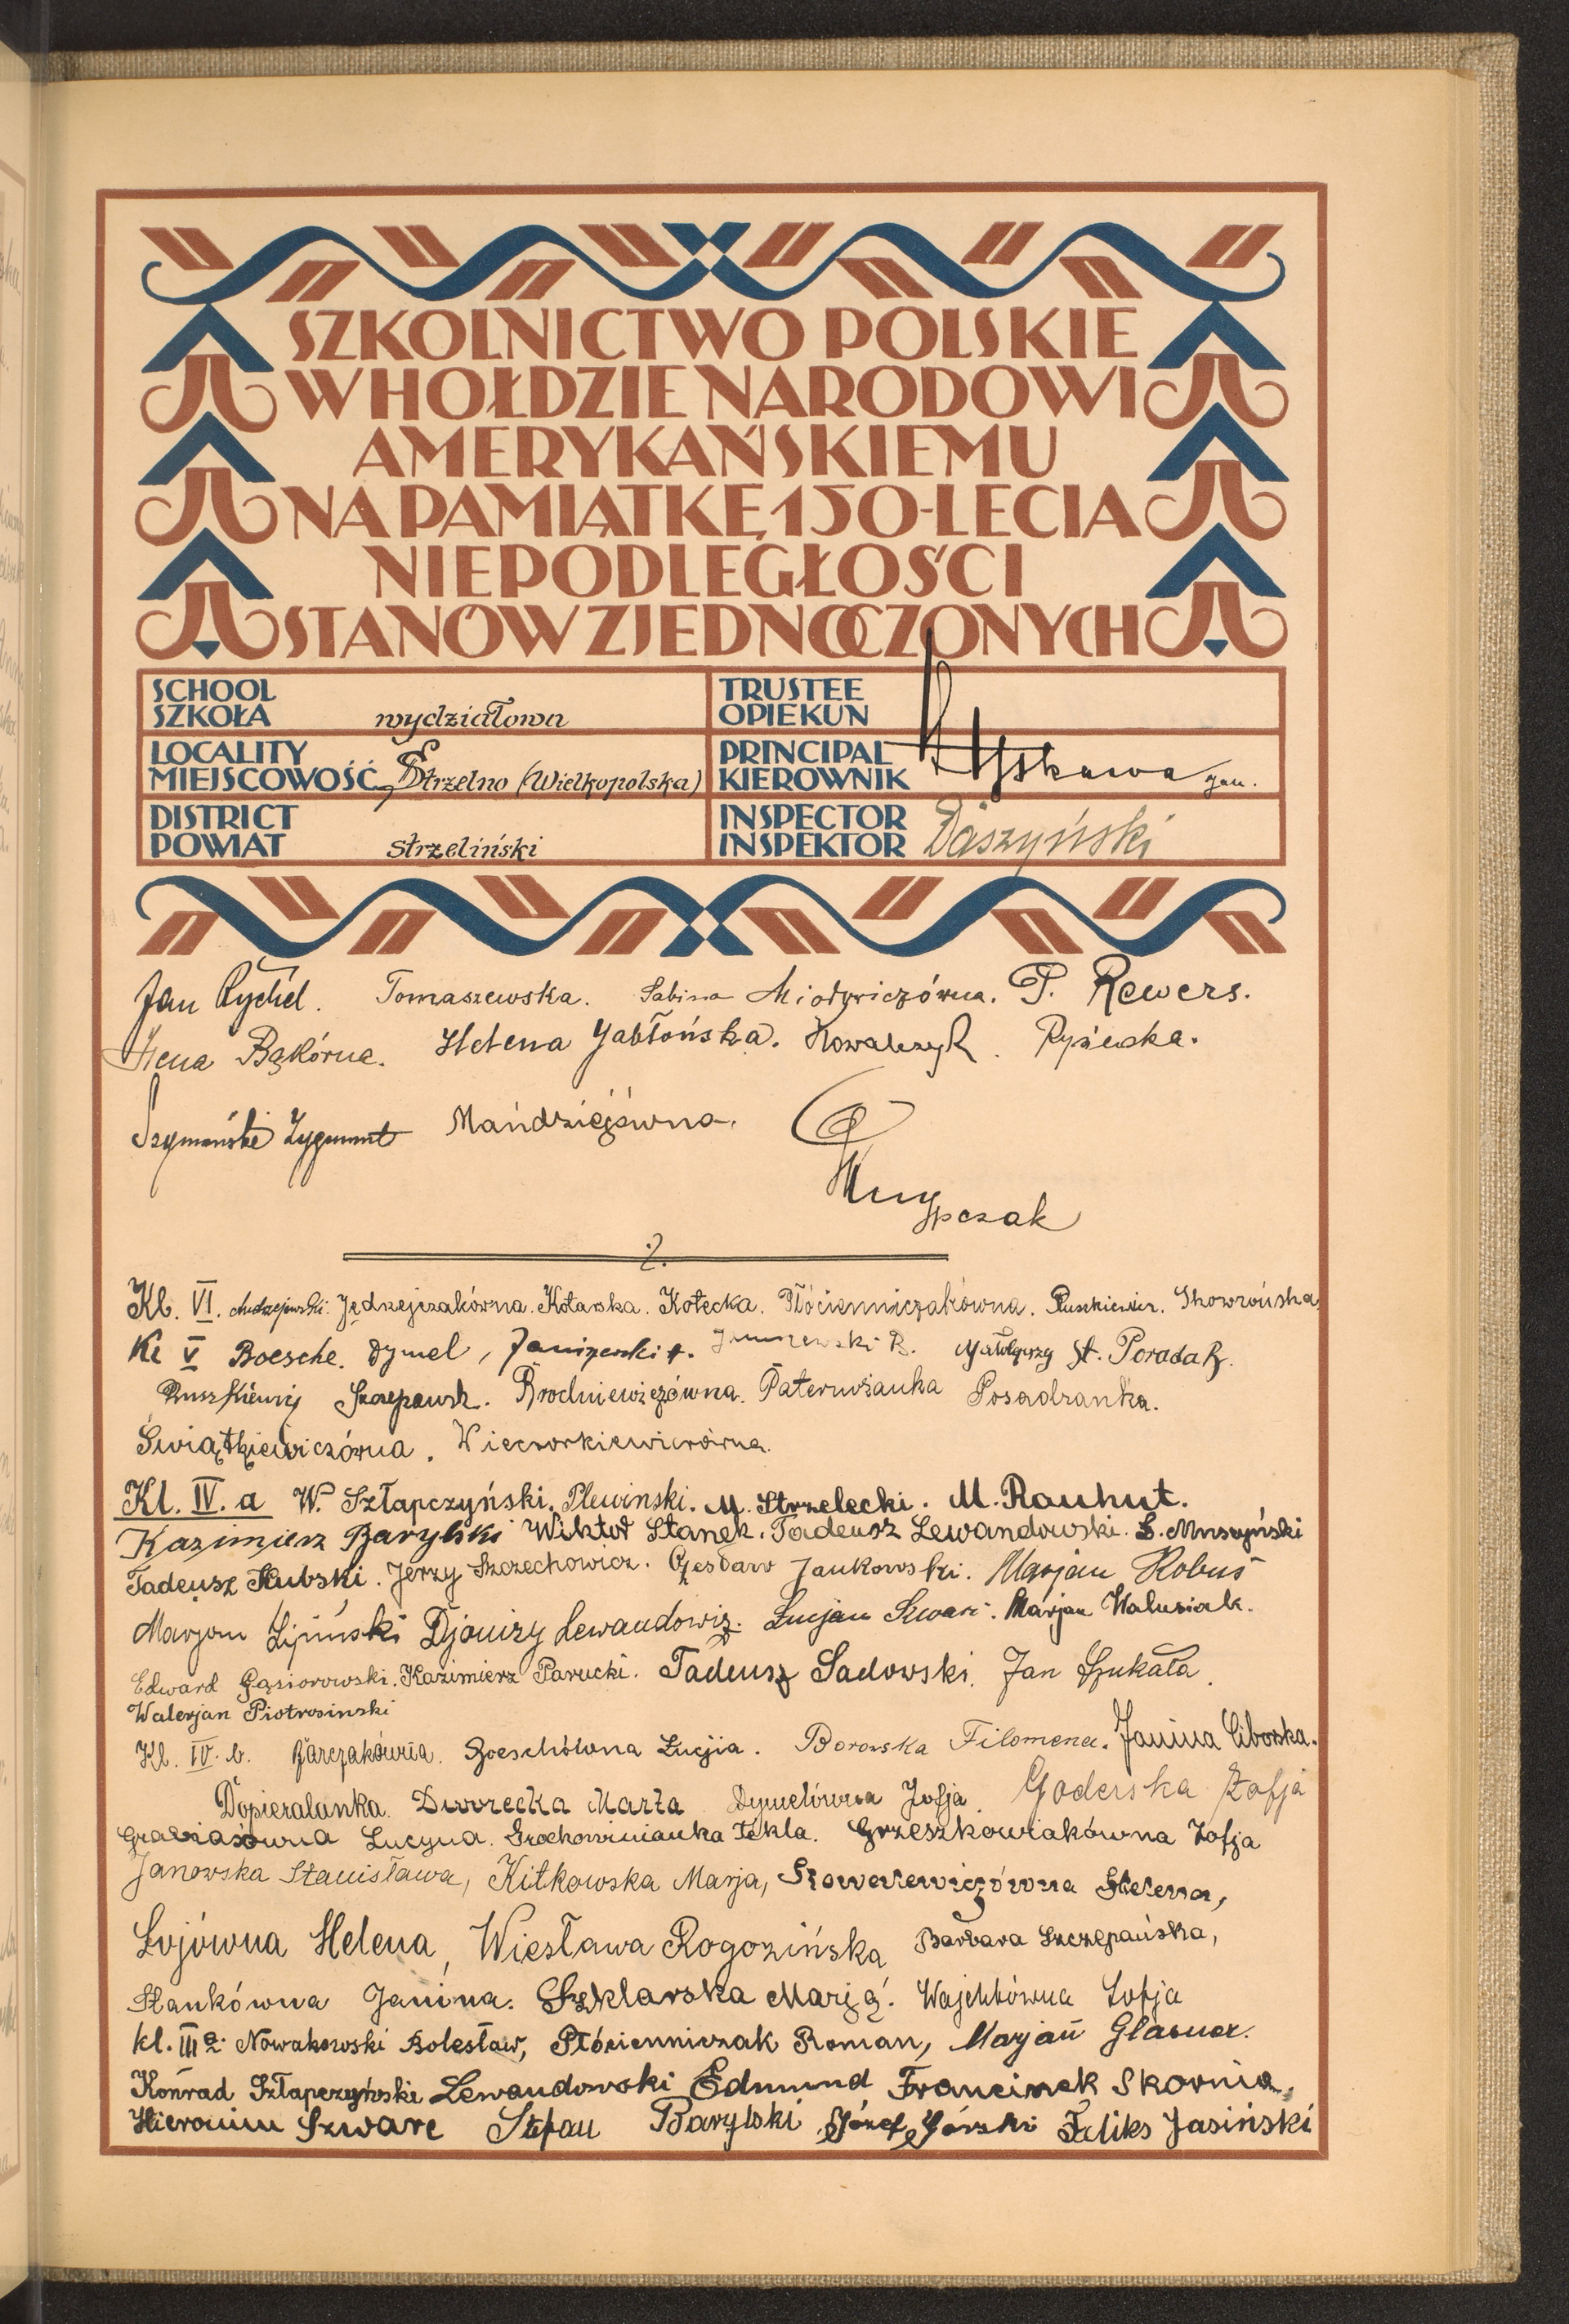 SZKOLNICTWO POLSKIE
W HOŁDZIE NARODOWI
AMERYKAŃSKIEMU
NA PAMIĄTKĘ 150-LECIA
NIEPODLEGŁOŚCI
STANÓW ZJEDNOCZONYCH
SCHOOL
SZKOŁA wydziałowa
TRUSTEE
OPIEKUN
LOCALITY
MIEJSCOWOŚĆ Strzelno (Wielkopolska)
PRINCIPAL
KIEROWNIK
DISTRICT
POWIAT strzeliński
INSPECTOR
INSPEKTOR Daszyński
Jan Rychel. Tomaszewska. Sabina P. Rewers.
Irena Bąkórna. Helena Jabłońska. Kowalczyk. Ryżewska.
Szymański Zygmunt Mańdziejówna.
Kl. VI. Andrzejewski. Jędrzejczakówna. Kotarska. Kotecka. Płócienniczakówna. Puszkiewicz. Skowrońska
Kl V Boesche. Dymel, St. Porada R.
Ruszkiewicz Szczepansk. Brodniewiczówna. Paternożanka Posadzanka.
Świątkiewiczówna. Wieczorkiewiczówna.
Kl. IV. a W. Sztapczyński. Plewinski. M. Strzelecki. M. Rauhut.
Kazimierz Barylski Wiktor Stanek. Tadeusz Lewandowski. S. Muszyński
Tadeusz Kubski. Jerzy Szczechowicz. Czesław Jankowski. Marjan Robuś
Marjan Lipiński Djonizy Lewandowicz. Lucjan Szwarc. Marjan Walusiak.
Edward Gąsiorowski. Kazimierz Parucki. Tadeusz Sadowski. Jan Szukała.
Walerjan Piotrosinski
Kl. IV. b. Barczakówna. Boeschówna Łucjia. Borowska Filomena. Janina Ciborska.
Dopieralanka. Dworecka Marta Dymelówna Zofja. Goderska Zofja
Grabiasówna Lucyna. Grochowinianka Tekla. Grzeszkowiakówna Zofja
Janowska Stanisława, Kitkowska Marja, Helena,
Łojówna Helena, Wiesława Rogozińska Barbara Szczepańska,
Stankówna Janina. Szklarska Wajchtówna Zofja
kl. III a. Nowakowski Bolesław, Płócienniczak Roman, Marjan Glasner.
Konrad Sztapczyński Lewandowski Edmund Franciszek Skornia,
Hieronim Szwarc Stefan Barylski Józef Górski Feliks Jasiński